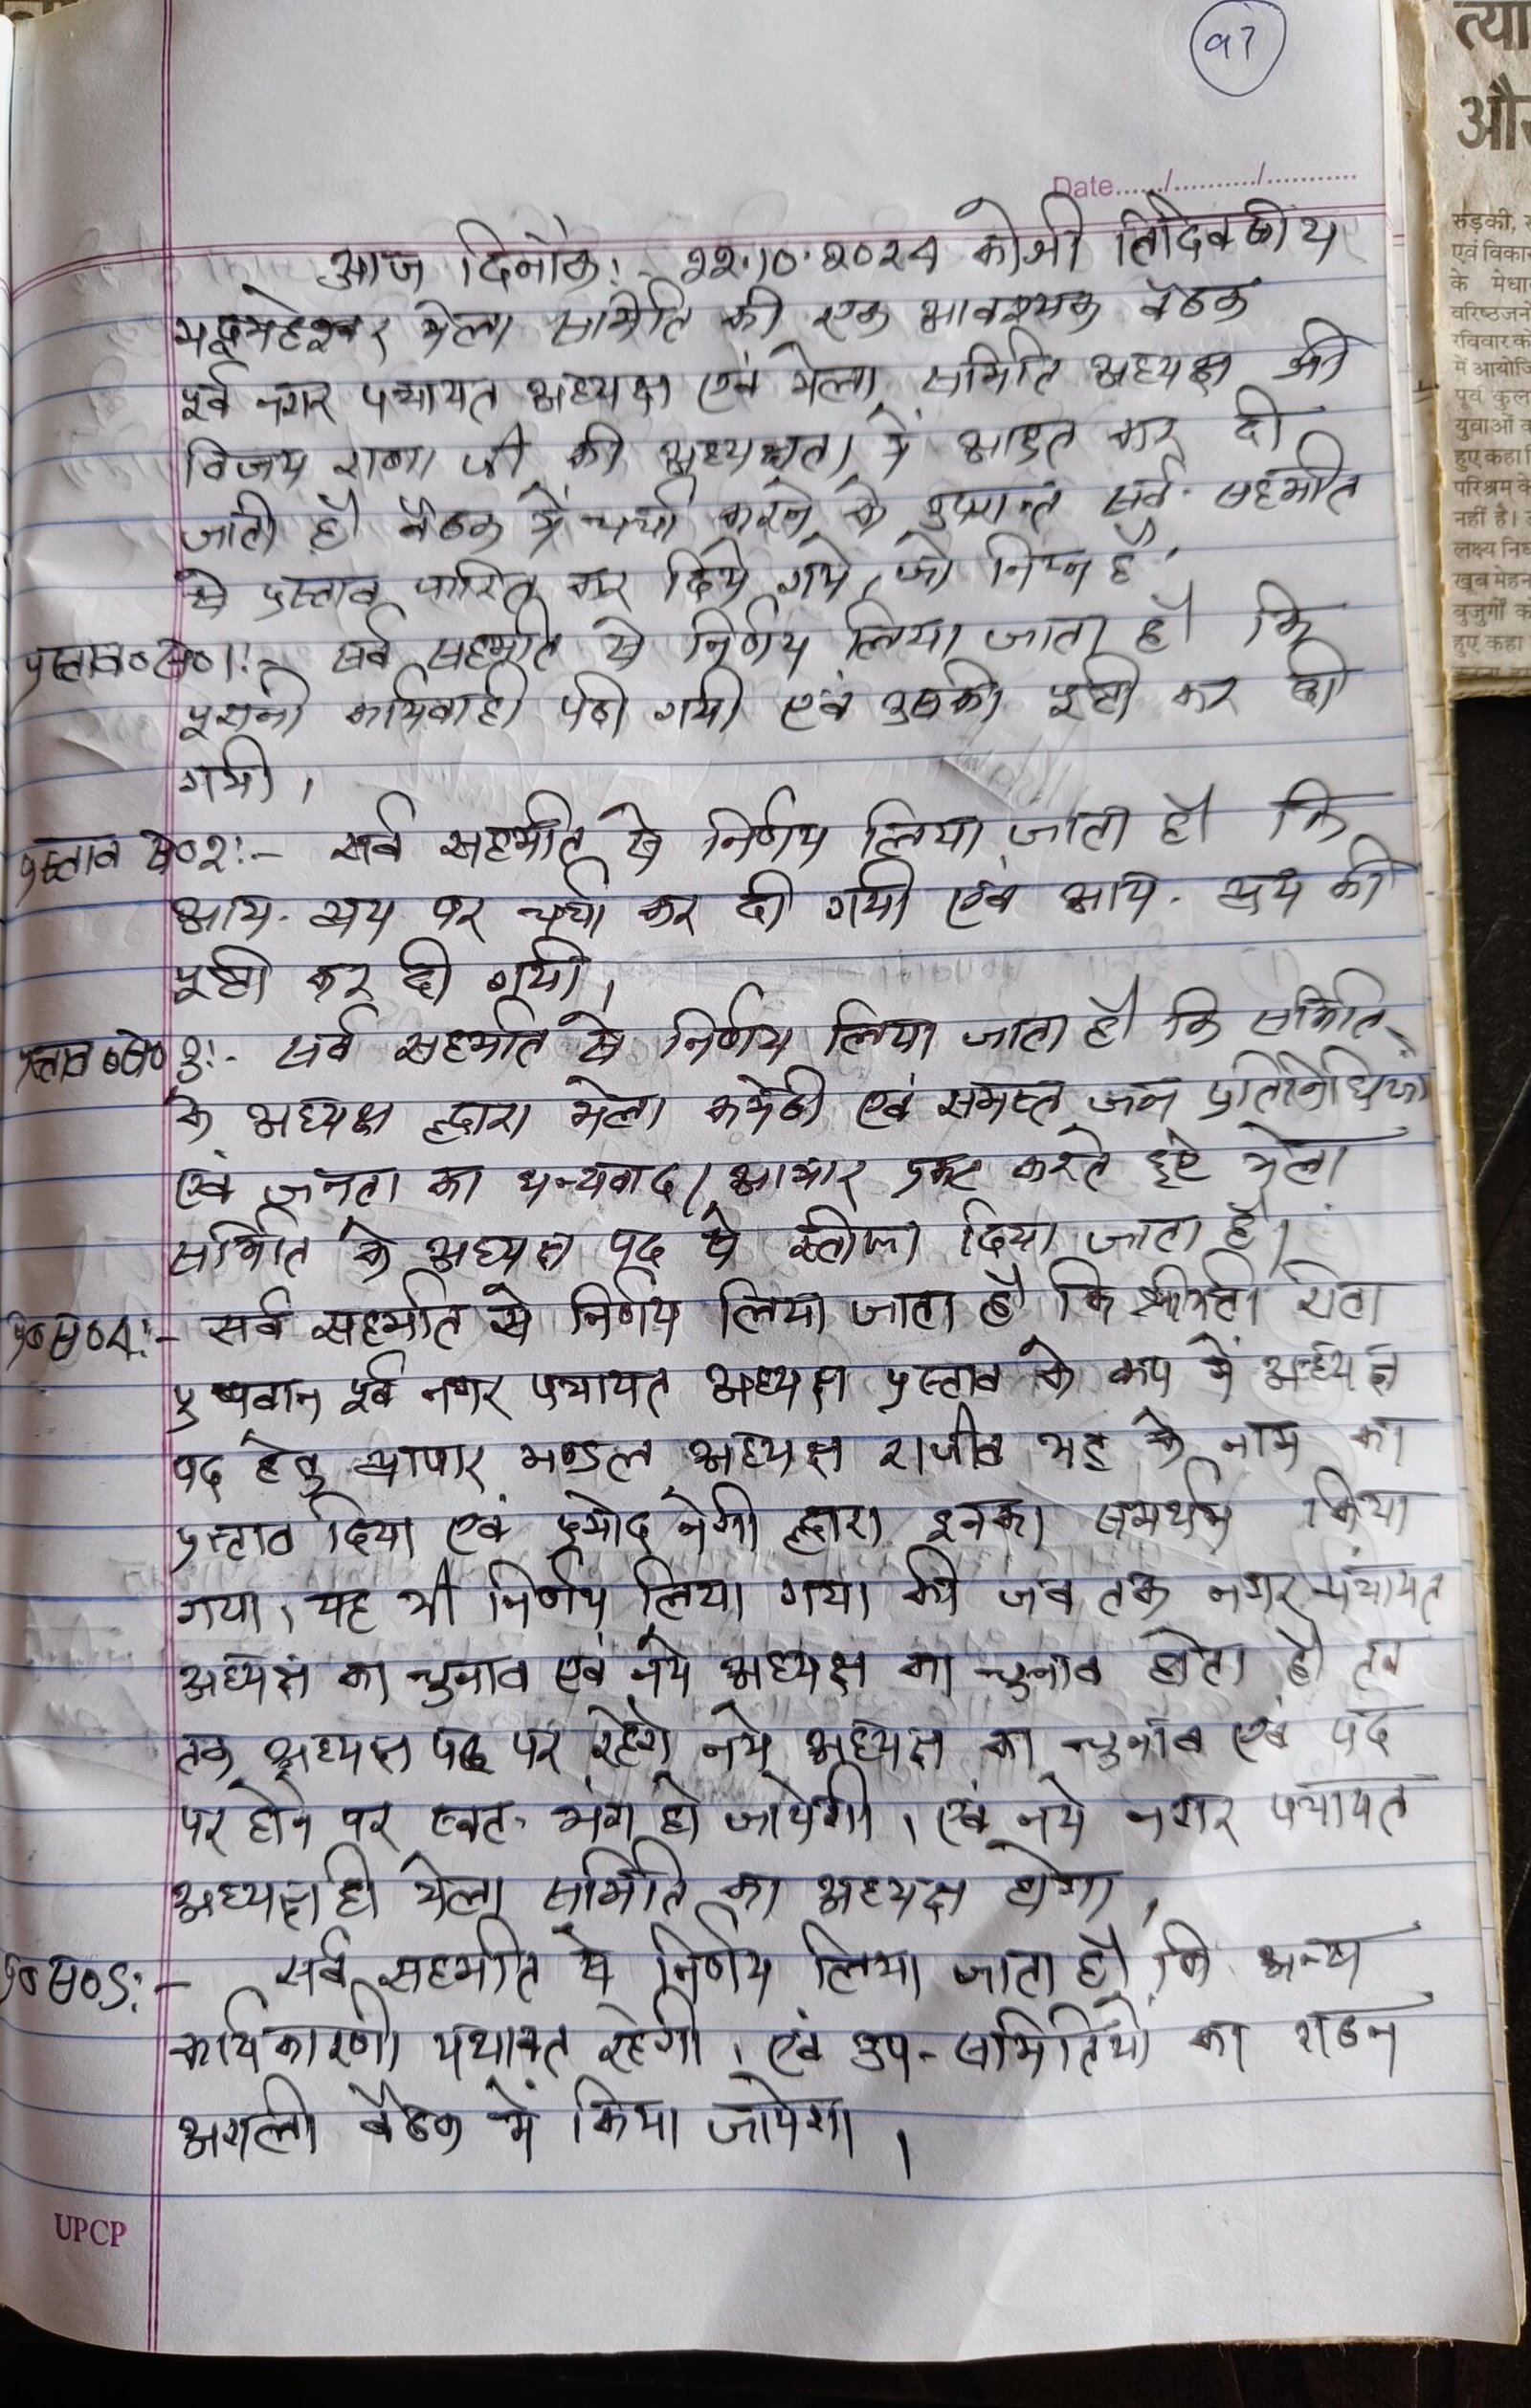 97
Date....../........../...........
आज दिनाँकः- 22.10.2024 को श्री त्रिदिवसीय
मद्महेश्वर मेला समिति की एक आवश्यक बैठक
पूर्व नगर पंचायत अध्यक्ष एवं मेला समिति अध्यक्ष श्री
विजय राणा जी की अध्यक्षता में आहूत कर दी
जाती है। बैठक में चर्चा करने के उपरान्त सर्व सहमति
से प्रस्ताव पारित कर दिये गये, जो निम्न है,
प्रस्ताव०सं०1:- सर्व सहमति से निर्णय लिया जाता है। कि
पुरानी कार्यवाही पढी गयी एवं उसकी पुष्टी कर दी
गयी।
प्रस्ताव सं०2:- सर्व सहमति से निर्णय लिया जाता है। कि
आय-व्यय पर चर्चा कर दी गयी एवं आय-व्यय की
पुष्टी कर दी गयी।
प्रस्ताव०सं०3:- सर्व सहमति से निर्णय लिया जाता है। कि समिति
के अध्यक्ष द्वारा मेला कमेटी एवं समस्त जन प्रतिनिधियों
एवं जनता का धन्यवाद/आभार प्रकट करते हुऐ मेला
समिति के अध्यक्ष पद से स्तीफा दिया जाता है।
प्र०सं०4:- सर्व सहमति से निर्णय लिया जाता है। कि श्रीमती रीता
पुष्पवान पूर्व नगर पंचायत अध्यक्ष प्रस्ताव के रूप में अध्यक्ष
पद हेतु व्यापार मण्डल अध्यक्ष राजीव भट्ट के नाम का
प्रस्ताव दिया एवं प्रमोद नेगी द्वारा इनका समर्थन किया
गया। यह भी निर्णय लिया गया की जब तक नगर पंचायत
अध्यक्ष का चुनाव एवं नये अध्यक्ष का चुनाव होता है। तब
तक अध्यक्ष पद पर रहेंगे, नये अध्यक्ष का चुनाव एवं पद
पर होने पर स्वत: भंग हो जायेगी। एवं नये नगर पंचायत
अध्यक्ष ही मेला समिति का अध्यक्ष होगा।
प्र०सं०5:- सर्व सहमति से निर्णय लिया जाता है। कि अन्य
कार्यकारणी यथावत रहेगी। एवं उप-समितियों का गठन
अगली बैठक में किया जायेगा।
UPCP
त्या
और
सड़की,
एवं विकास
के मेधा
वरिष्ठजनों
रविवार को
में आयोजि
पूर्व कुल
युवाओं व
हुए कहा
परिश्रम के
नहीं है।
लक्ष्य निध
खूब मेहन
बुजुर्गों क
हुए कहा